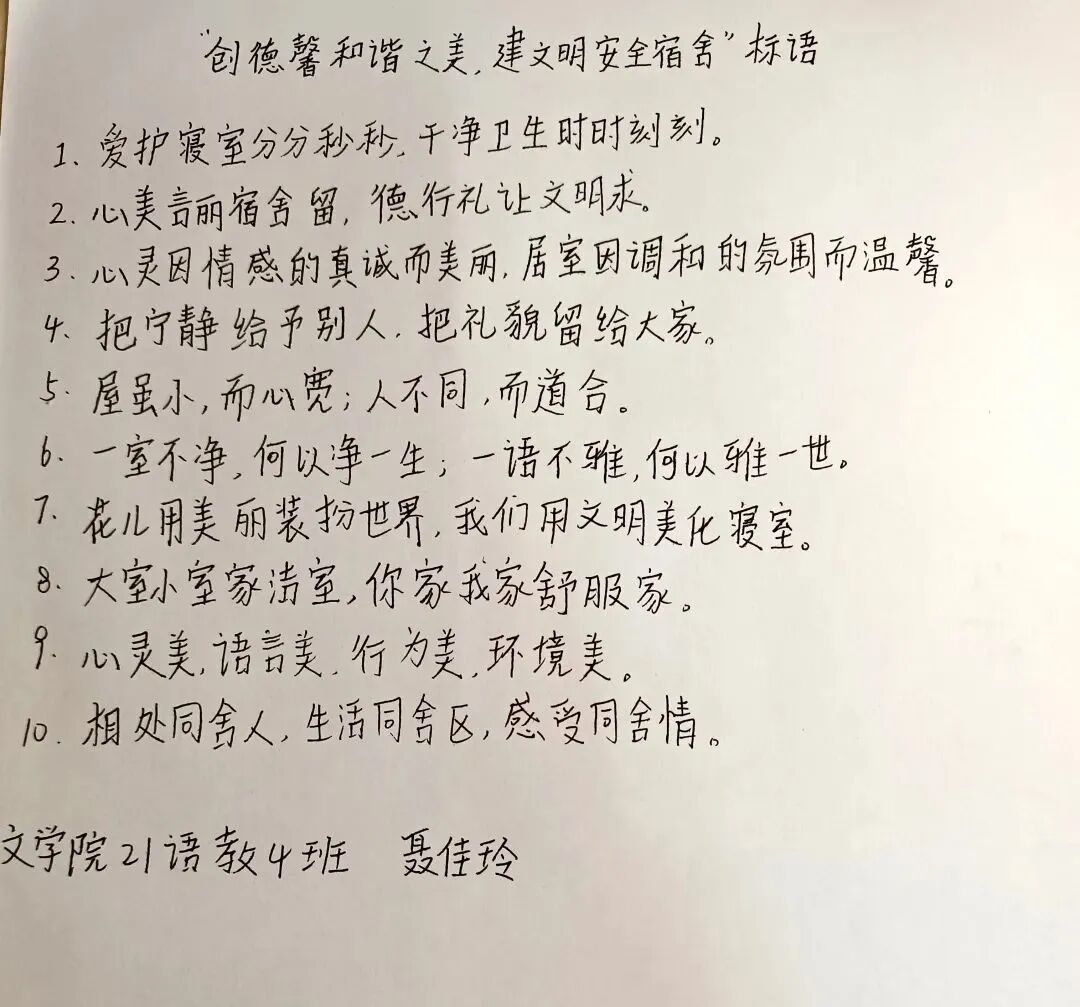 “创德馨和谐之美,建文明安全宿舍”标语
1、爱护寝室分分秒秒,干净卫生时时刻刻。
2、心美言丽宿舍留,德行礼让文明求。
3、心灵因情感的真诚而美丽,居室因调和的氛围而温馨。
4、把宁静给予别人,把礼貌留给大家。
5、屋虽小,而心宽;人不同,而道合。
6、一室不净,何以净一生;一语不雅,何以雅一世。
7、花儿用美丽装扮世界,我们用文明美化寝室。
8、大室小室家洁室,你家我家舒服家。
9、心灵美,语言美,行为美,环境美。
10、相处同舍人,生活同舍区,感受同舍情。
文学院21语教4班 聂佳玲